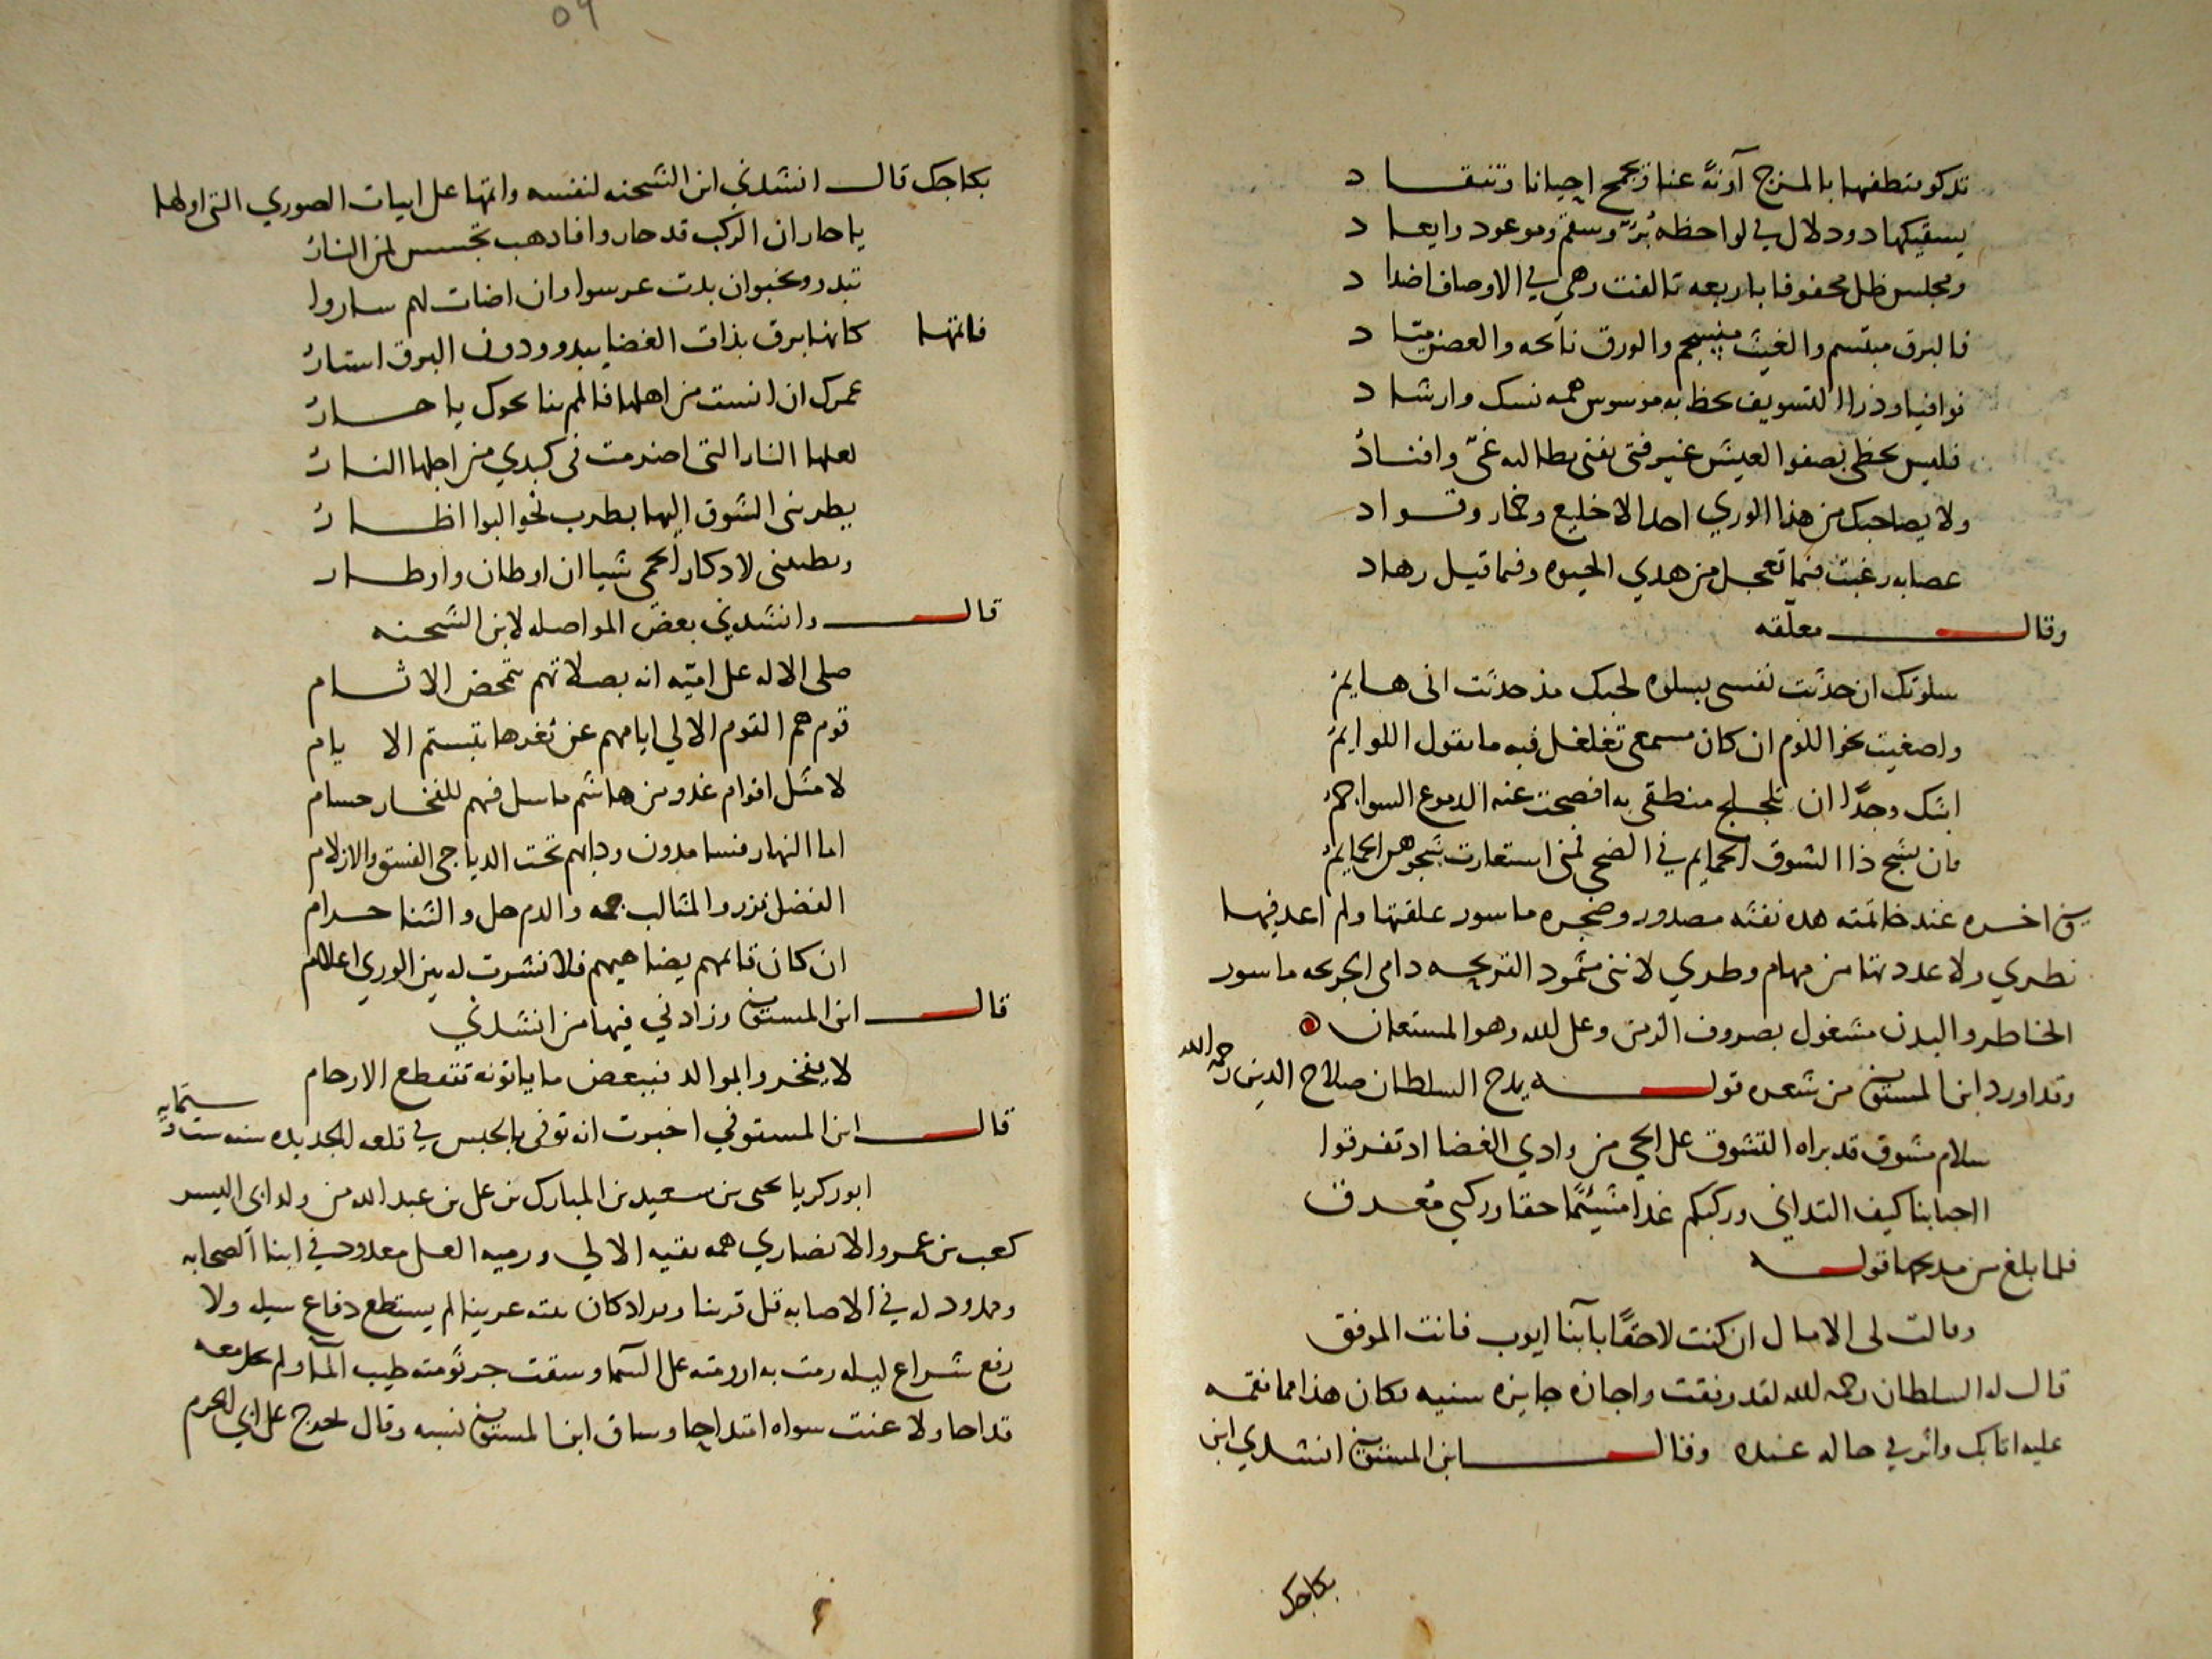 تذكو نتطفيها بالمزج آونةً عنا وتجمح احيانا وتنقاد
يسقيكها ذو دلال في لواحظه بُرءٌ وسقم وموعود وايعاد
ومجلس ظل محفوفا باربعه تالفت وهي في الاوصاف اضداد
فالبرق مبتسم والغيث منسجم والورق نائحه والغصن مياد
فوافنيا وذرا التسويف بحظ به موسوس همه نسك وارشاد
فليس يحظى بصفو العيش غير فتى يفنى بطالبه غيّ وافنادُ
ولا يصاحبك من هذا الوري احد الا خليع وخمار وقواد
عصابه رغبت فيما تعجل من هذي الحيوه وفيما قيل زهاد
وقال معلّقه
سلوتك ان حدثت نفسي بسلوه لحبك مذ حدثت انى هايمُ
واصغيت نحو اللوم ان كان مسمعي تغلغل فيه ما يقول اللوايمُ
ابثك وجدًا ان تلجلج منطقي به افصحت عنه الدموع السواجمُ
فان يشج ذا الشوق الحمايم في الضحى فمنى استعارت شجوهن الحمايمُ
في اخره عند خاتمته هذه نفثه مصدور وضجره ماسور علقتها ولم اعد فيها
نظري ولا عددتها من مهام وطري لانني مثمود القريحه دامي الجرحه ماسور
الخاطر والبدن مشغول بصروف الزمن وعلى الله وهو المستعان
وقد اورد ابن المستوفي من شعره قوله يمدح السلطان صلاح الدين رحمه الله
سلام مشوق قد براه التشوق على الحي من وادي الغضا اذ تفرقوا
ااحبابنا كيف التداني وركبكم غدا مشئمًا حقا وركبي مُعرق
فلما بلغ من مديحها قوله
وقالت لى الامال ان كنت لاحقًا بابنا ايوب فانت الموفق
قال له السلطان رحمه الله لقد وفقت واجازه جايزه سنيه فكان هذا مما نقمه
عليه اتابك واثر في حاله عنده وقال ابن المستوفي انشدني ابن
بكاجك
بكاجك قال انشدني ابن الشحنه لنفسه واتمها على ابيات الصوري التي اولها
يا حار ان الركب قد حاروا فاذهب تحسس لمن النارُ
تبدو وتخبو ان بدت عرسوا وان اضات لهم ساروا
فاتمها كانها برق بذات الغضا يبدو ودون البرق استارُ
عمرك ان انست من اهلها فالمم بنا نحوك يا حارُ
لعلها النار التي اضرمت في كبدي من اجلها النارُ
يطربني الشوق اليها يطرب نحو البو اظارُ
ويطبيني لادكار الحمى شيان اوطان واوطار
قال وانشدني بعض المواصله لابن الشحنه
صلى الاله على اميّه انه بصلاتهم تتمحض الاثام
قوم هم القوم الالي ايامهم عن ثغرها تبتسم الايام
لا مثل اقوام غدو من هاشم ما سل فيهم للفخار حسام
اما النهار فسامدون ودابهم تحت الدياجي الفسق والازلام
الفضل نزر والمثالب جمه والذم حل والثنا حرام
ان كان قايمهم يضاهيهم فلا نشرت له بين الوري اعلام
قال ابن المستوفي وزادني فيها من انشدني
لا يفخروا بموالد فببعض ما ياتونه تتقطع الارحام
قال ابن المستوفي اخبرت انه توفي بالحبس في قلعه الجديده سنه ست وستمايه
ابو زكريا يحيى بن سعيد بن المبارك بن علي بن عبد الله من ولد ابي اليسر
كعب بن عمرو الانصاري همه بقيه الالي ورميه العلى معدود في ابنا الصحابه
ومدود له في الاصابه قبل تربنا ويراد كان عته عرينا لم يستطع دفاع سيله ولا
رفع شراع ليله رمت به ارومته على السما وسقت جرثومته طيب الما ولم معه
قداحا ولا عنت سواه امتداحا وساق ابن المستوفي نسبه وقال تخرج على ابي الحرم